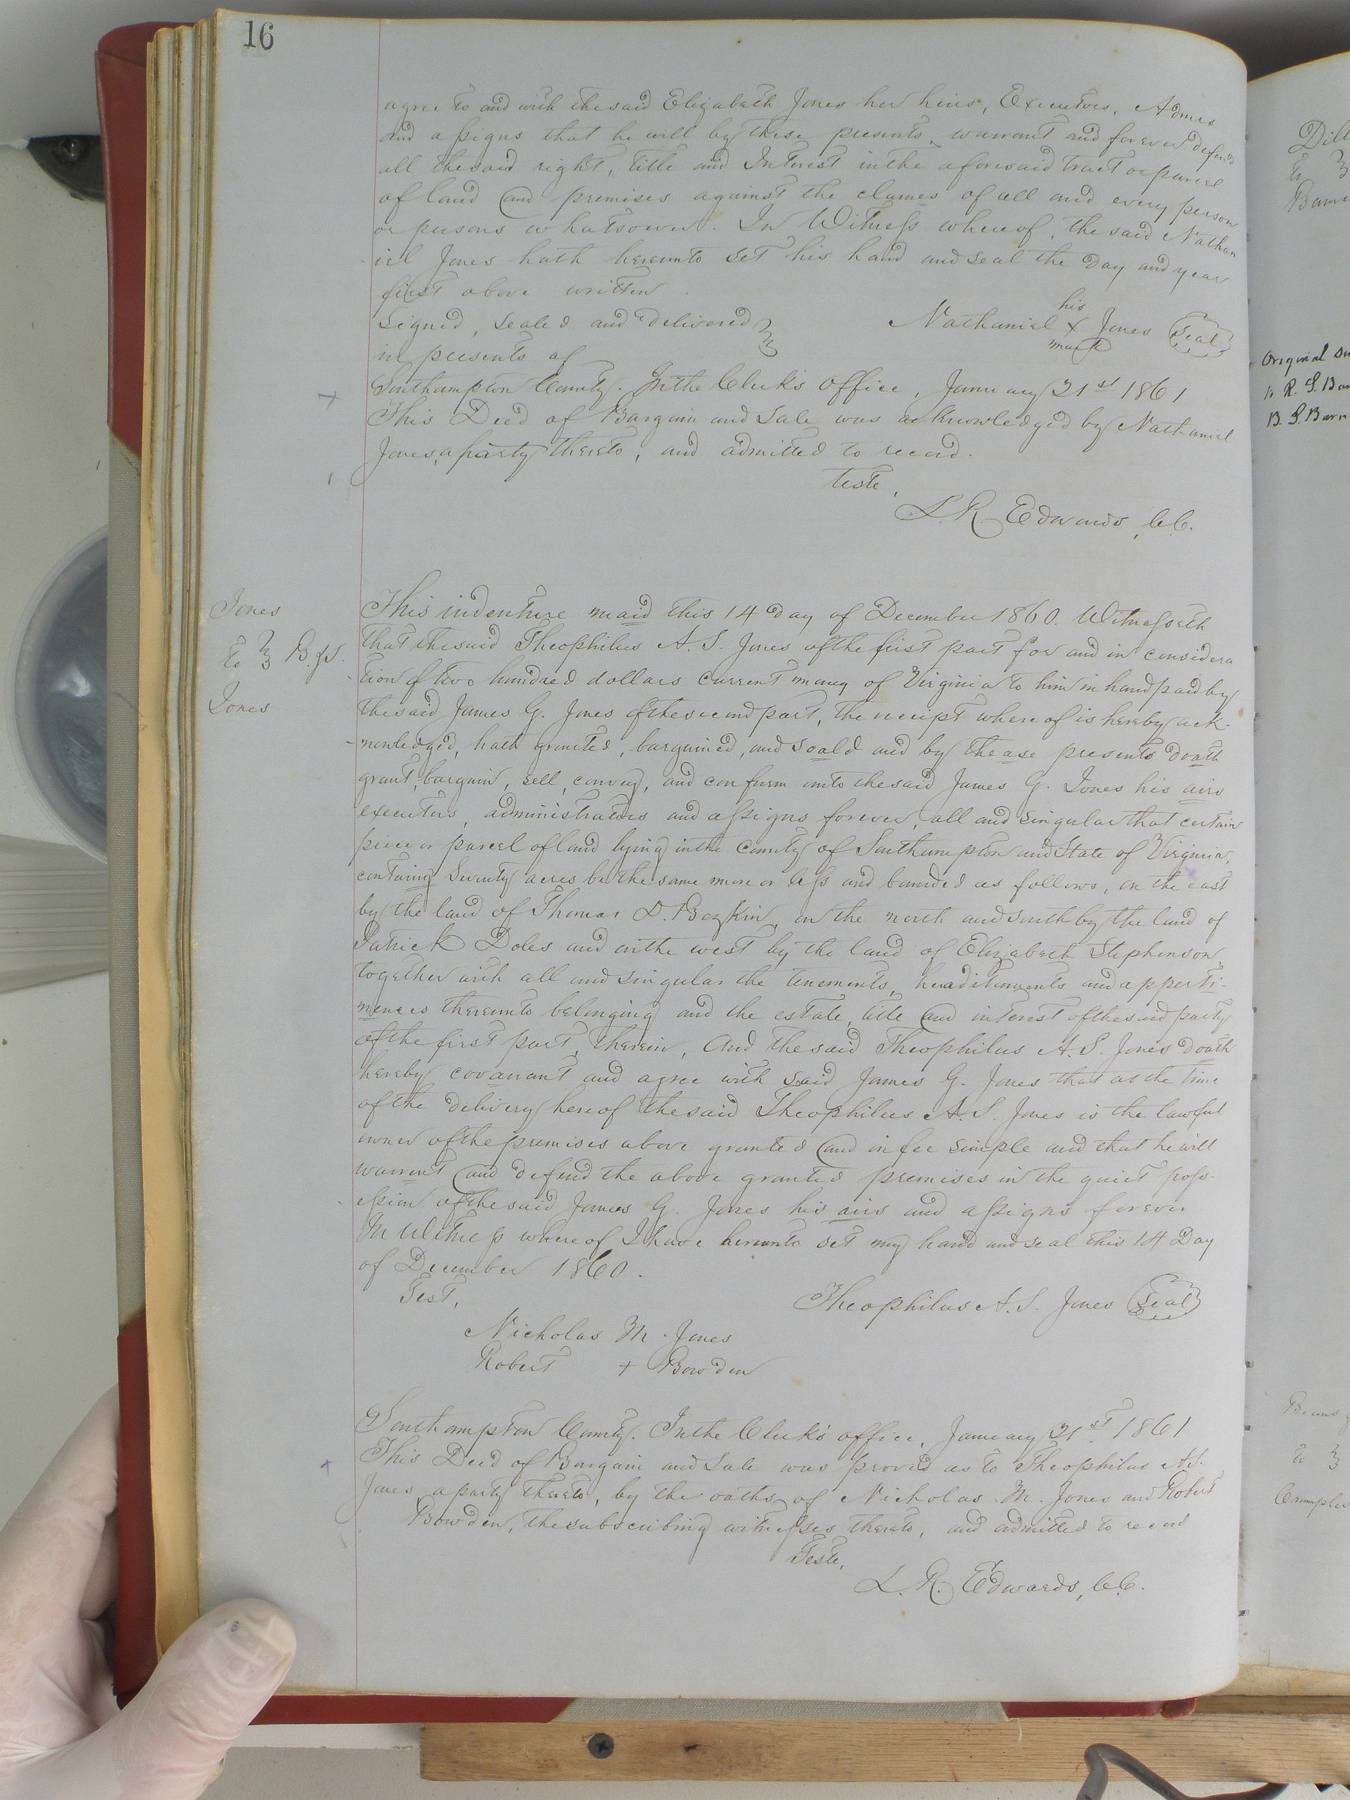 16
agree to and with the said Elizabeth Jones her heirs, Executors, Admrs
and assigns that he will by these presents, warrant and forever defend
all the said right, title and Interest in the aforesaid tract or parcel
of land and premises against the clames of all and every person
or persons whatsoever. In Witness whereof, the said Nathan
iel Jones hath hereunto set his hand and seal the day and year
first above written.
Signed, sealed and delivered
in presents of
his
Nathaniel X Jones Seal
mark
Southampton County. In the Clerk's office, January 21st 1861
This Deed of Bargain and Sale was acknowledged by Nathaniel
Jones, a party thereto, and admitted to record.
Teste,
L. R. Edwards, C.C.
Jones
To B.&S.
Jones
This indenture maid this 14 day of December 1860. Witnesseth
that the said Theophilus A. S. Jones of the first part for and in considera
tion of two hundred dollars current money of Virginia to him in hand paid by
the said James G. Jones of the second part, the receipt where of is hereby ack-
nowledged, hath granted, bargained, and soald and by thease presents doath
grant, bargain, sell, convey, and confurm unto the said James G. Jones his airs
executors, administrators and assigns forever, all and singular that certain
piece or parcel of land lying in the county of Southampton and State of Virginia,
containg Seventy acres be the same more or less and bounded as follows, on the east
by the land of Thomas D. Boykin, on the north and south by the land of
Patrick Doles and on the west by the land of Elizabeth Stephenson,
together with all and singular the tenements, heraditaments and apperti-
mences thereunto belonging and the estate, title and interest of the said party
of the first part, therein, And the said Theophilus A. S. Jones doath
hereby covanant and agree with said James G. Jones that at the time
of the delivery hereof the said Theophilus A. S. Jones is the lawful
owner of the premises above granted and in fee simple and that he will
warrent and defend the above granted premises in the quiet poss-
ession of the said James G. Jones his airs and assigns forever
In Witness where of I have hereunto set my hand and seal this 14 Day
of December 1860.
Test,
Theophilus A. S. Jones Seal
Nicholas M. Jones
Robert + Bowden
Southampton County. In the Clerk's office, January 21st 1861
This Deed of Bargain and Sale was proved as to Theophilus A.S.
Jones a party thereto, by the oaths of Nicholas M. Jones and Robert
Bowden, the subscribing witnesses thereto, and admitted to record
Teste,
L. R. Edwards, C.C.
Dill
To
Original
B. S. Barn
To